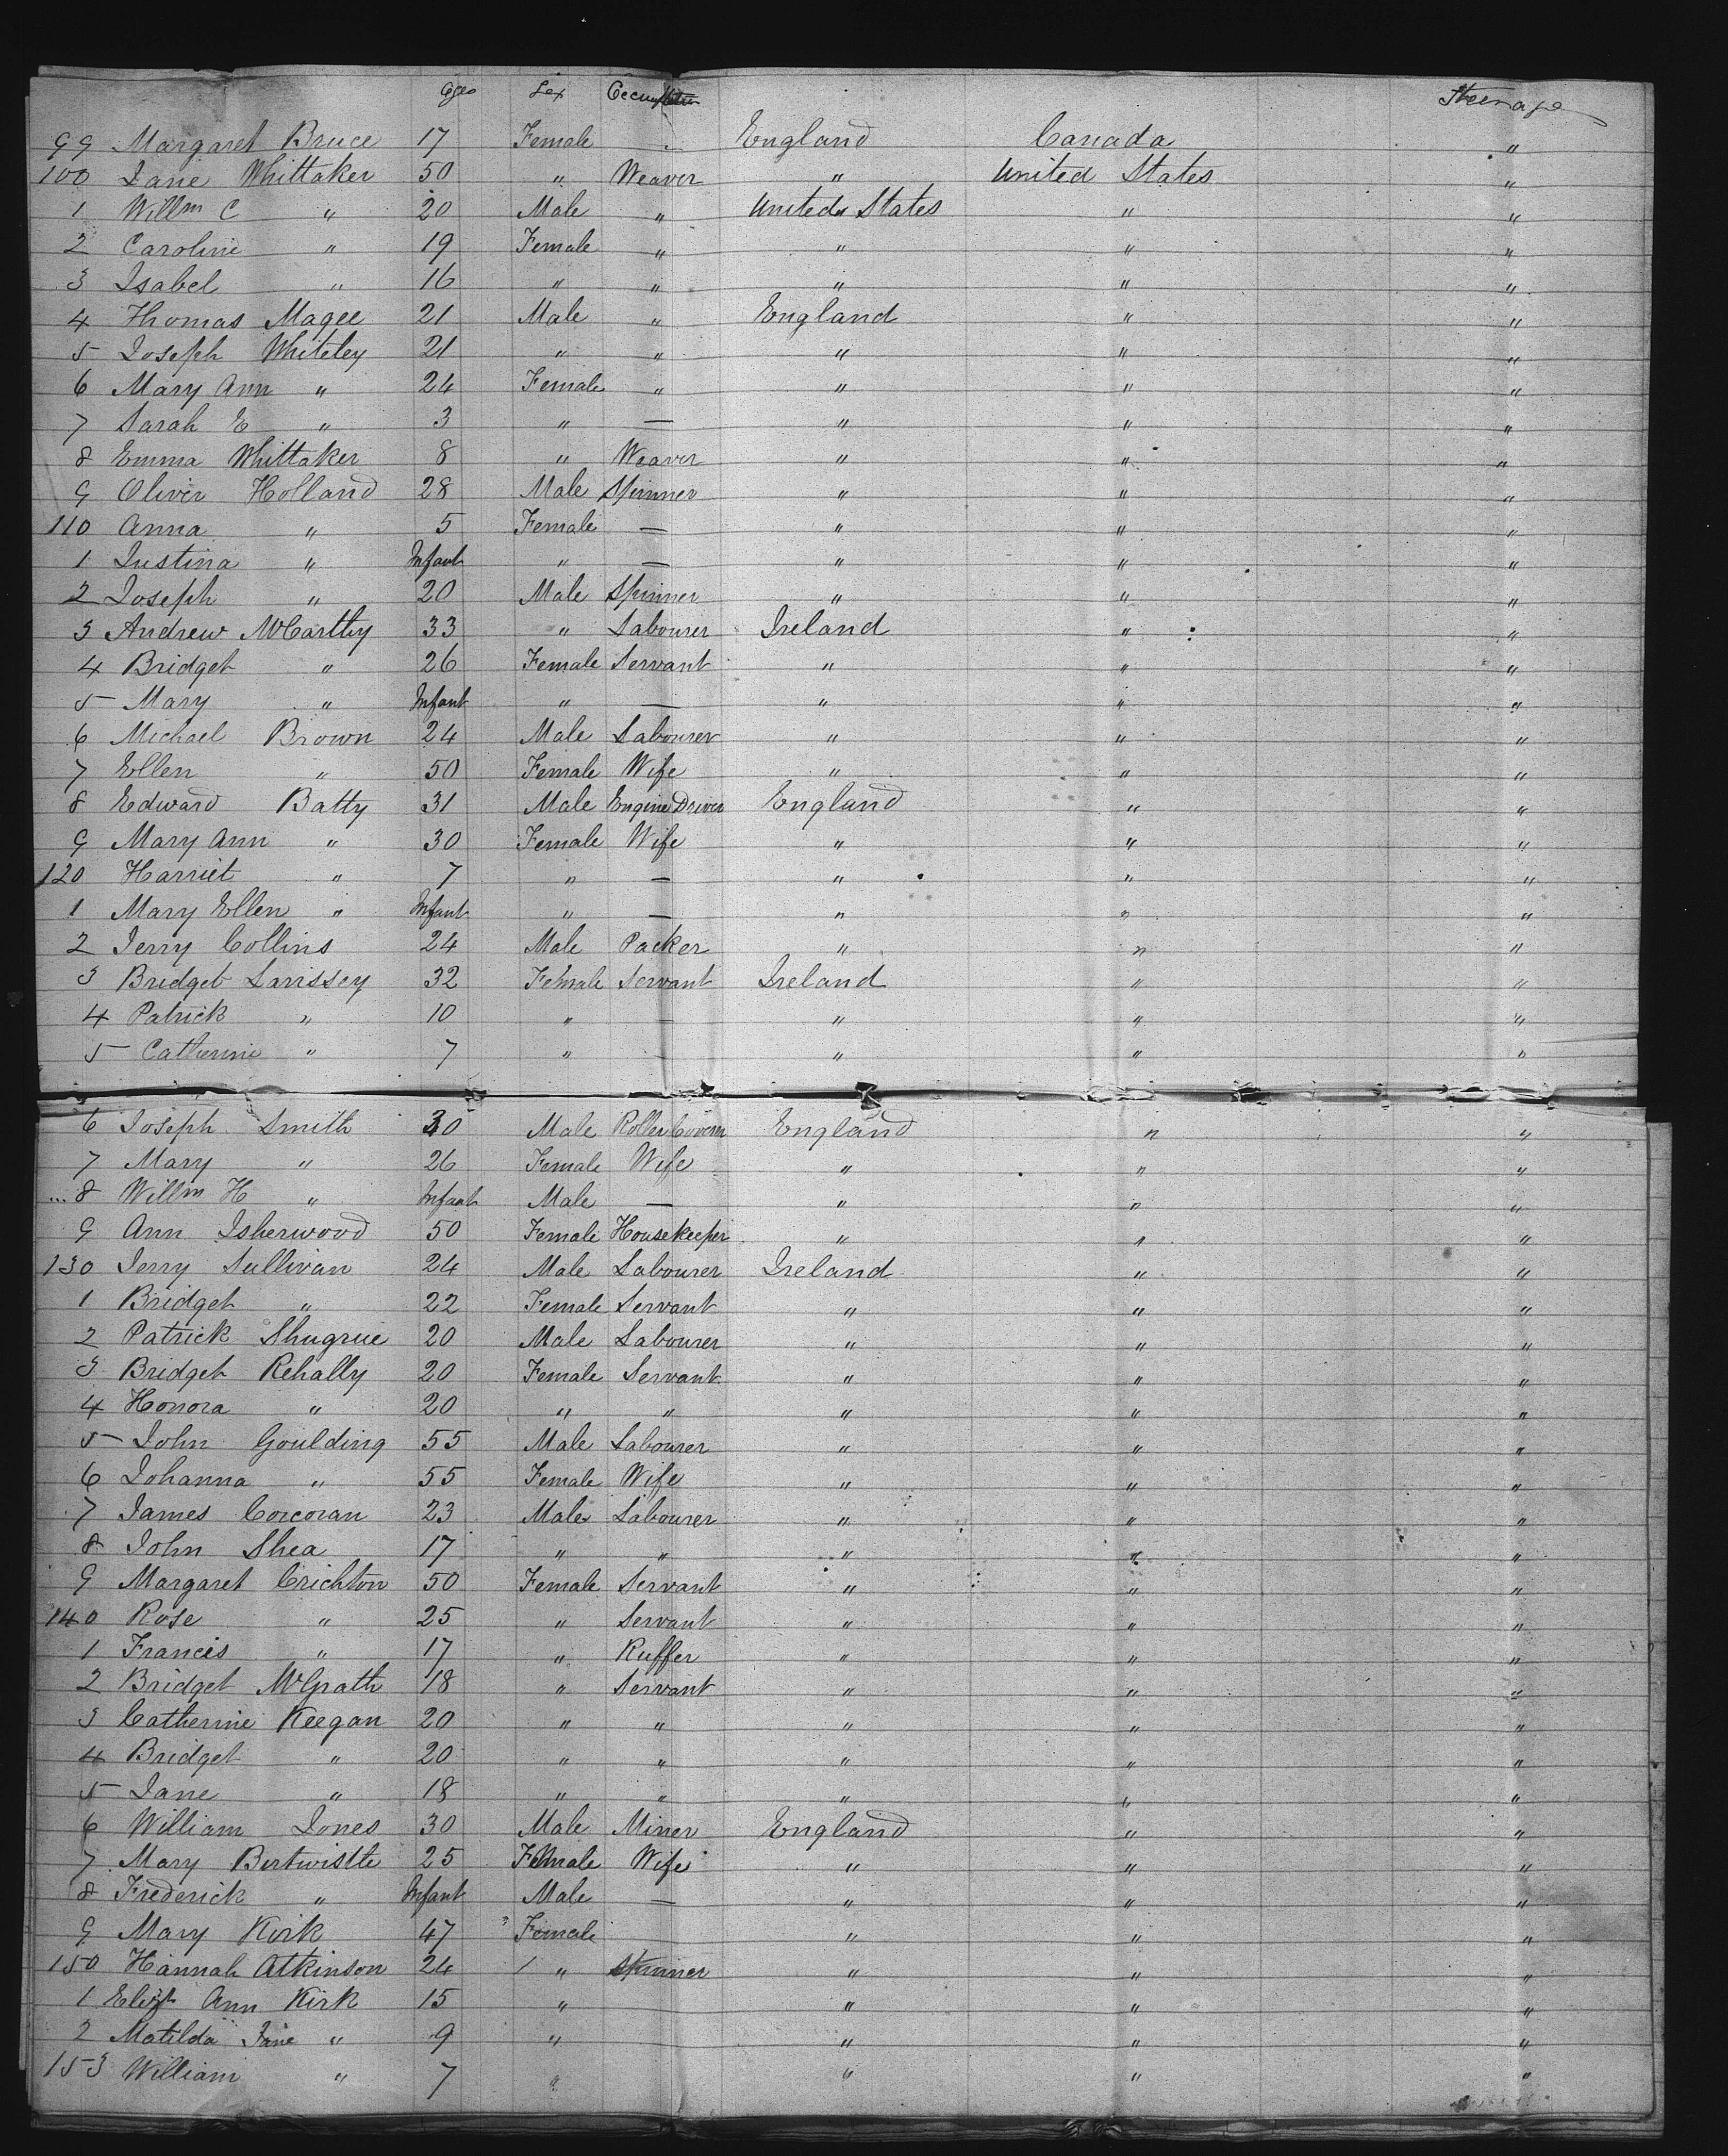 Ages Sex Occupation Steerage
99 Margaret Bruce 17 Female " England Canada "
100 Jane Whittaker 50 " Weaver " United States "
1 Willm C " 20 Male " United States " "
2 Caroline " 19 Female " " " "
3 Isabel " 16 " " " " "
4 Thomas Magee 21 Male " England " "
5 Joseph Whiteley 21 " " " " "
6 Mary Ann " 24 Female " " " "
7 Sarah E " 3 " — " " "
8 Emma Whittaker 8 " Weaver " " "
9 Oliver Holland 28 Male Spinner " " "
110 Anna " 5 Female — " " "
1 Justina " Infant " — " " "
2 Joseph " 20 Male Spinner " " "
3 Andrew McCarthy 33 " Labourer Ireland " "
4 Bridget " 26 Female Servant " " "
5 Mary " Infant " — " " "
6 Michael Brown 24 Male Labourer " " "
7 Ellen " 50 Female Wife " " "
8 Edward Batty 31 Male Engine Driver England " "
9 Mary Ann " 30 Female Wife " " "
120 Harriet " 7 " — " " "
1 Mary Ellen " Infant " — " " "
2 Jerry Collins 24 Male Packer " " "
3 Bridget Larissey 32 Female Servant Ireland " "
4 Patrick " 10 " — " " "
5 Catherine " 7 " " " "
6 Joseph Smith 30 Male Roller Coverer England " "
7 Mary " 26 Female Wife " " "
8 Willm H " Infant Male — " " "
9 Ann Isherwood 50 Female Housekeeper " " "
130 Jerry Sullivan 24 Male Labourer Ireland " "
1 Bridget " 22 Female Servant " " "
2 Patrick Shugrue 20 Male Labourer " " "
3 Bridget Rehally 20 Female Servant " " "
4 Honora " 20 " " " " "
5 John Goulding 55 Male Labourer " " "
6 Johanna " 55 Female Wife " " "
7 James Corcoran 23 Male Labourer " " "
8 John Shea 17 " " " " "
9 Margaret Crichton 50 Female Servant " " "
140 Rose " 25 " Servant " " "
1 Francis " 17 " Ruffer " " "
2 Bridget McGrath 18 " Servant " " "
3 Catherine Keegan 20 " " " " "
4 Bridget " 20 " " " " "
5 Jane " 18 " " " " "
6 William Jones 30 Male Miner England " "
7 Mary Birtwistle 25 Female Wife " " "
8 Frederick " Infant Male — " " "
9 Mary Kirk 47 Female " " "
150 Hannah Atkinson 24 " Spinner " " "
1 Elizt Ann Kirk 15 " " " "
2 Matilda Jane " 9 " " " "
153 William " 7 " " " "